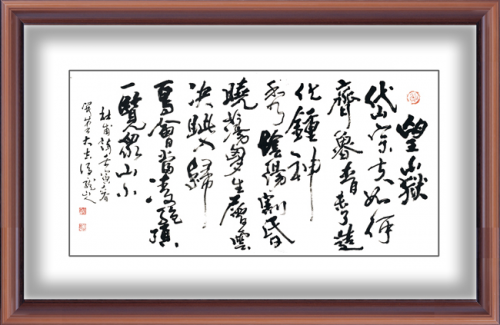 望嶽
岱宗夫如何
齊魯青未了造
化鍾神
秀陰陽割昏
曉蕩胸生層雲
決眦入歸
鳥會當凌絕頂
一覽眾山小
杜甫詩